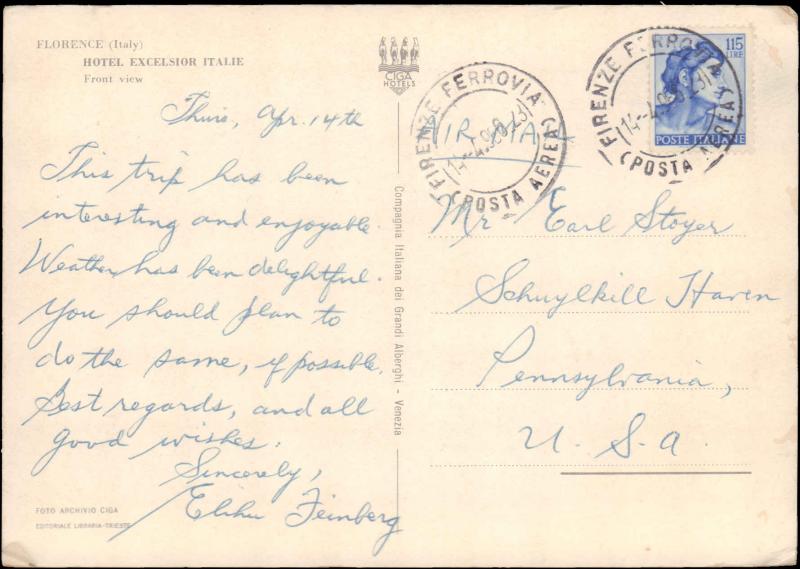 FLORENCE (Italy)
HOTEL EXCELSIOR ITALIE
Front view
CIGA
HOTELS
Thurs, Apr. 14th
This trip has been
interesting and enjoyable.
Weather has been delightful.
You should plan to
do the same, if possible.
Best regards, and all
good wishes.
Sincerely,
Elihu Feinberg
FOTO ARCHIVIO CIGA
EDITORIALE LIBRARIA-TRIESTE
Compagnia Italiana dei Grandi Alberghi - Venezia
AIR MAIL
FIRENZE FERROVIA
(POSTA AEREA)
FIRENZE FERROVIA
(POSTA AEREA)
115
LIRE
POSTE ITALIANE
Mr Earl Stoyer
Schuylkill Haven
Pennsylvania,
U. S. A.